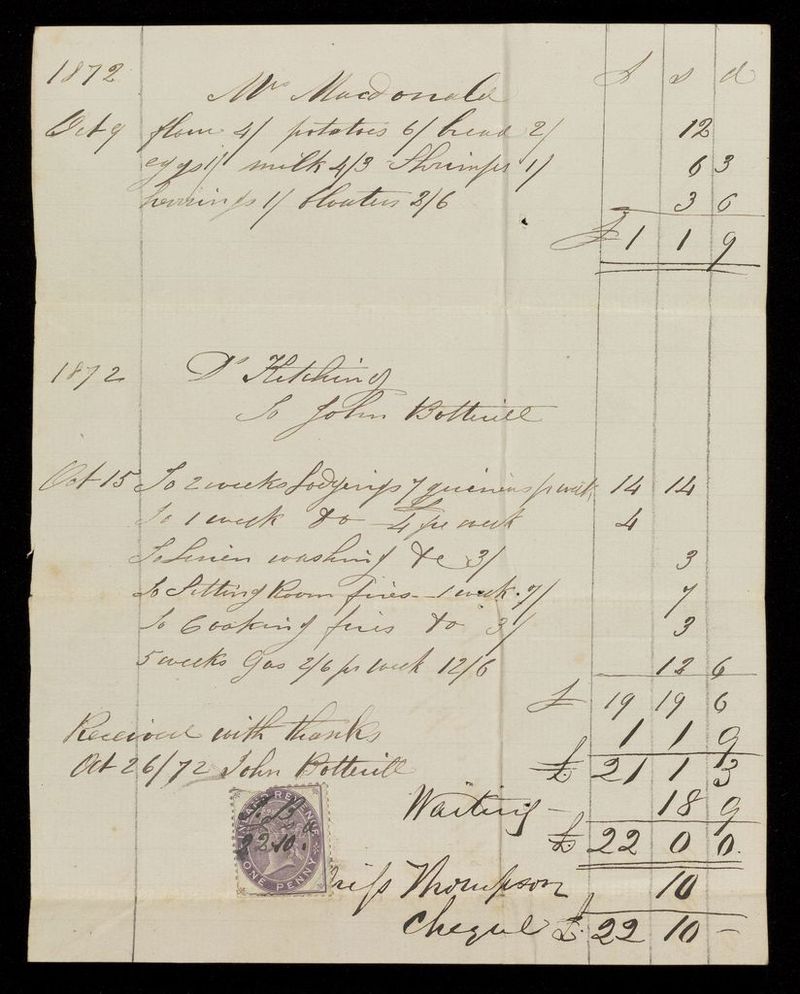 1872 £ s d
Mrs Macdonald
Oct 9 flour 4/ potatoes 6/ bread 2/ 12
eggs 1/ milk 4/3 Shrimps 1/ 6 3
herrings 1/ bloaters 2/6 3 6
£ 1 1 9
1872 Dr Kitching
To John Botterill
Oct 15 To 2 weeks Lodgings 7 guineas pr week 14 14
To 1 week do £4 per week 4
To Linen washing &c 3/ 3
To Sitting Room fires 1 week 7/ 7
To Cooking fires do 3/ 3
5 weeks Gas 2/6 pr week 12/6 12 6
£ 19 19 6
Received with thanks 1 1 9
Oct 26/72 John Botterill £ 21 1 3
Waiting - 18 9
£ 22 0 0
INLAND REVENUE
J.B.
22.10.
ONE PENNY
Miss Thompson 10
Cheque £ 22 10 -